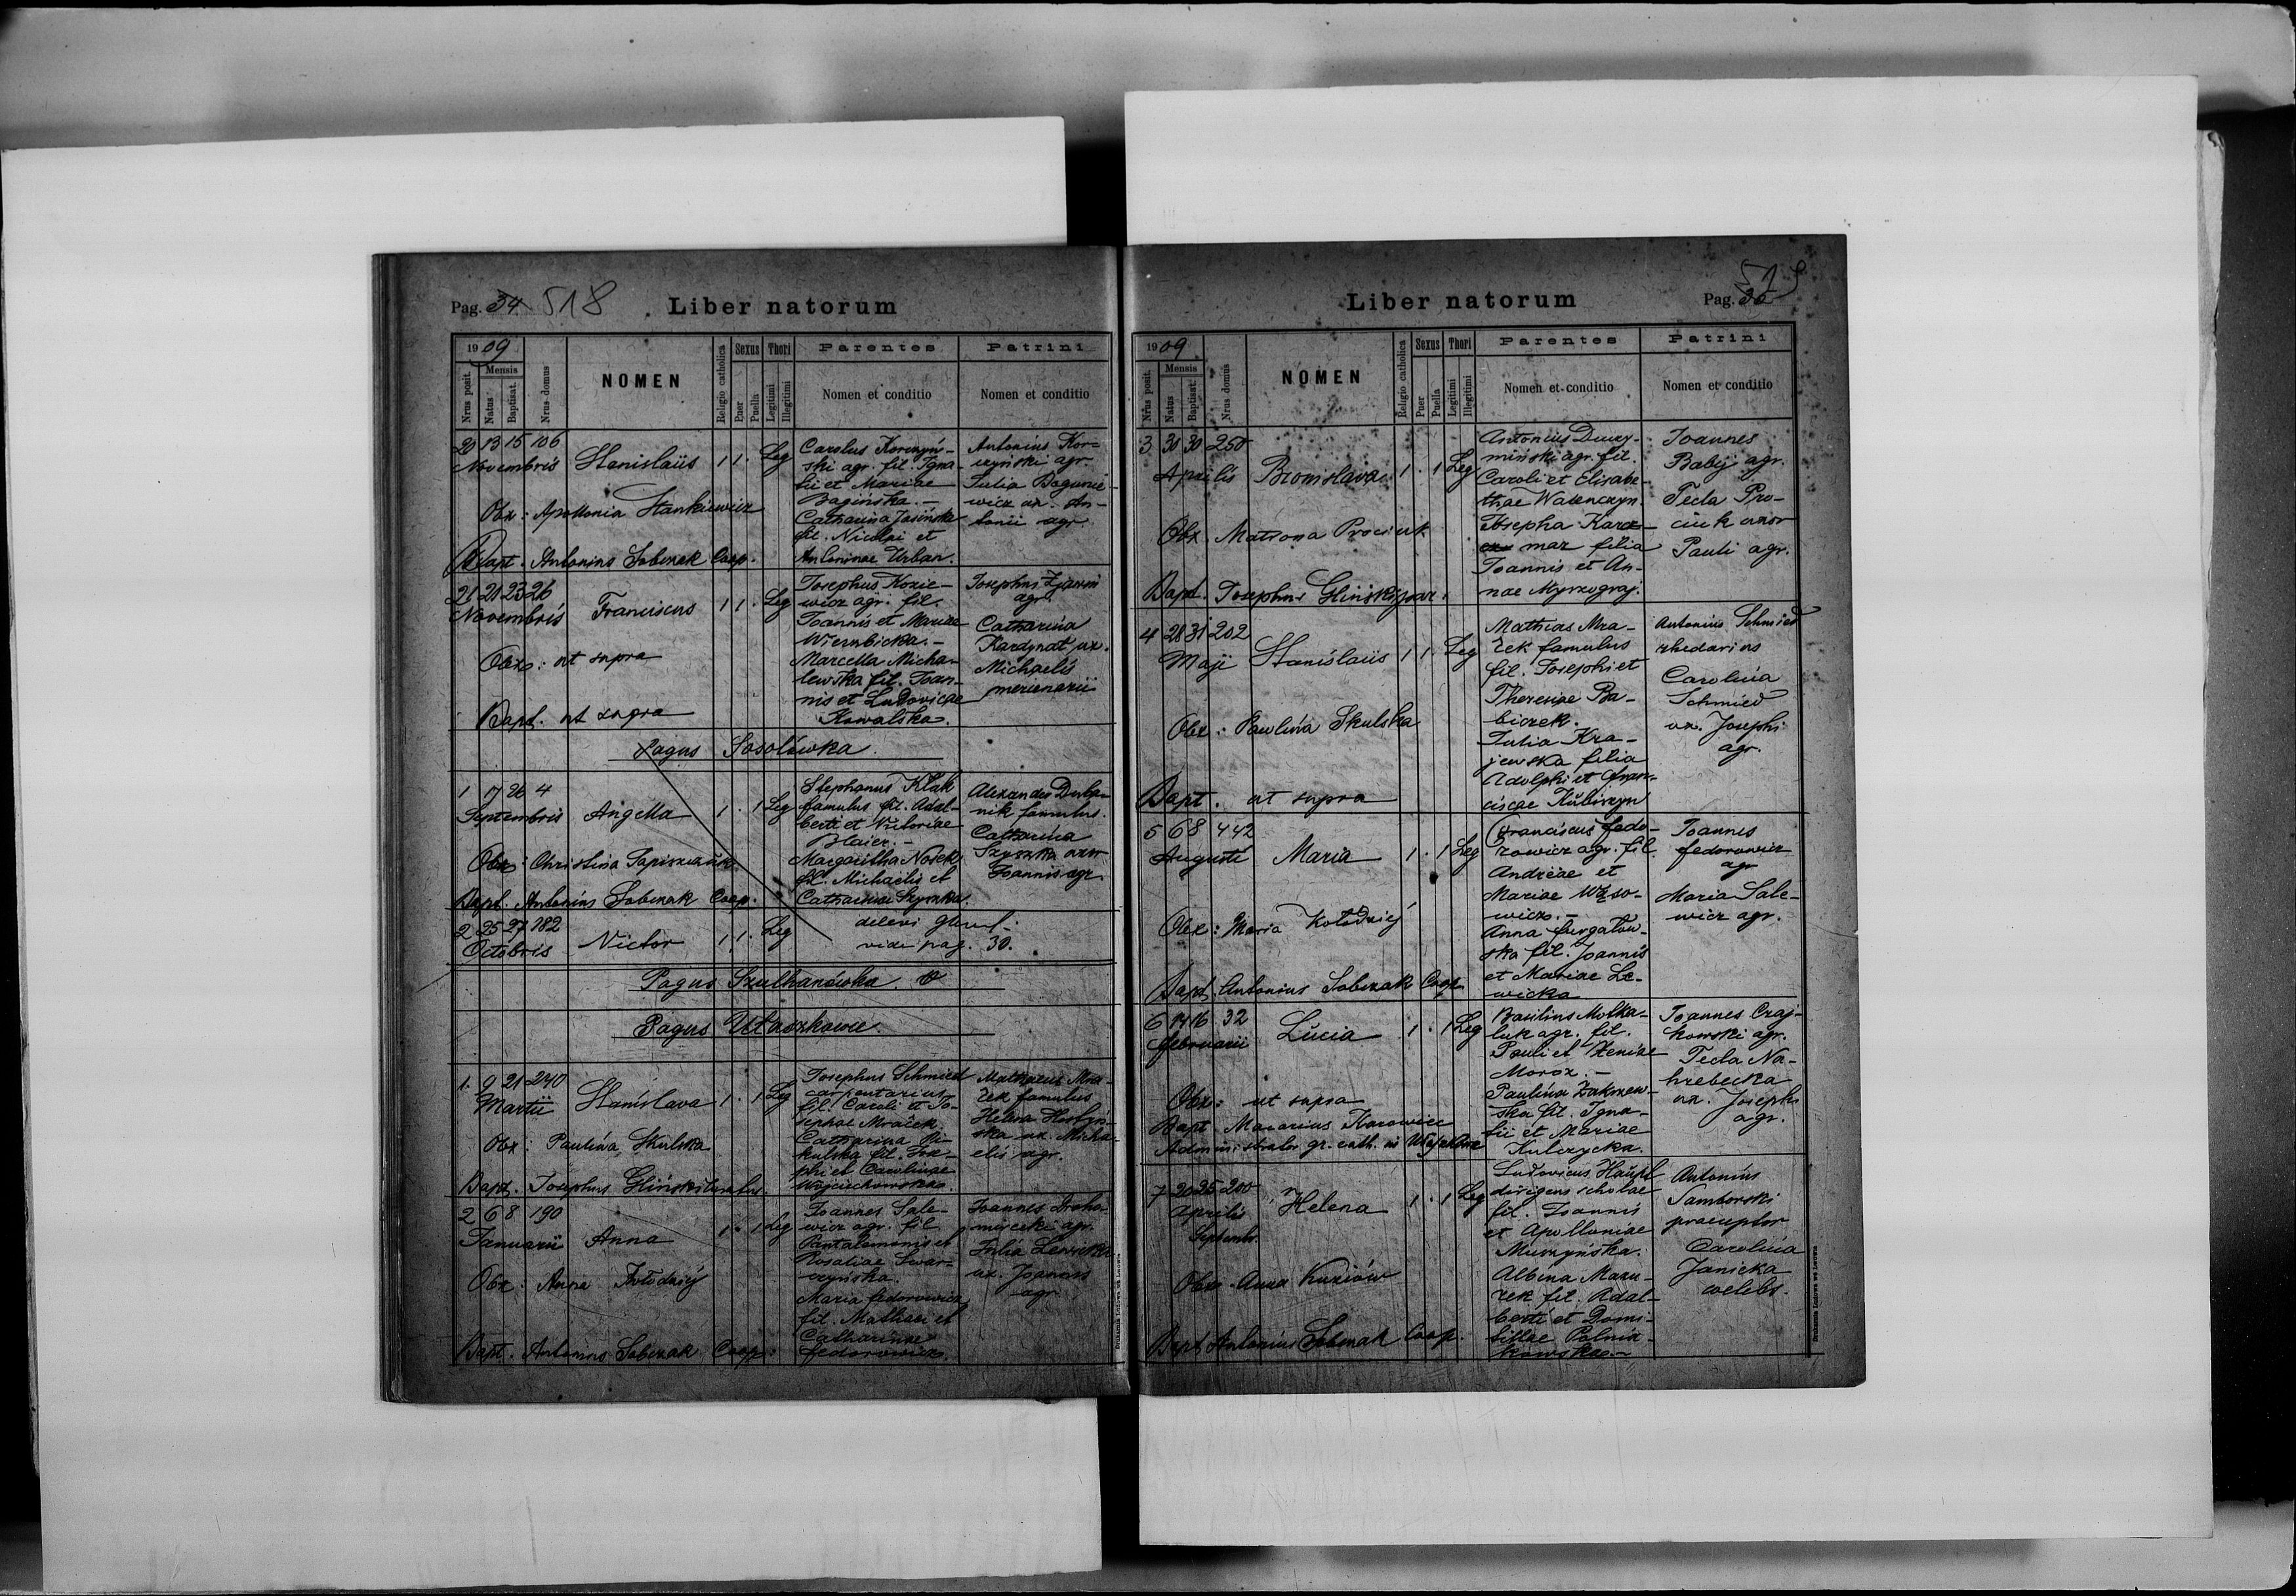 Pag. 34 518
Liber natorum
1909
Nrus posit.
Mensis
Natus
Baptisat.
Nrus domus
NOMEN
Religio catholica
Sexus
Puer
Puella
Thori
Legitimi
Illegitimi
Parentes
Nomen et conditio
Patrini
Nomen et conditio
20 13 15 106
Novembris
Stanislaüs 1 1 . Leg
Obx : Apollonia Stankiewicz
Bapt. Antonius Sobczak Coop.
Carolus Korczyń-
ski agr. fil. Igna-
tii et Mariae
Bagińska. —
Catharina Jasińska
fil. Nicolai et
Antoninae Urban.
Antonius Kor=
czyński agr.
Julia Bogunie-
wicz ux. An-
tonii agr.
21 21 23 26
Novembris
Franciscus 1 1 . Leg
Obx : ut supra
Bapt. ut supra
Josephus Kozie-
wicz agr. fil.
Joannis et Mariae
Wernbicka. —
Marcella Micha-
lewska fil. Joan-
nis et Ludovicae
Kowalska.
Josephus
agr.
Catharina
Kardynat ux.
Michaelis
mercenarii
Pagus Sosolówka.
1 17 26 4
Septembris
Angella 1 . 1 Leg
Obx : Christina
Bapt. Antonius Sobczak Coop.
Stephanus Klak
famulus fil. Adal-
berti et Victoriae
Blaicr. —
Margaritha Nosek
fil. Michaelis et
Catharinae Szyszka.
Alexander
nik famulus.
Catharina
Szyszka uxor
Joannis agr.
2 25 27 182
Octobris
Victor 1 1 . Leg
vide pag. 30.
Pagus Szulhanówka.
Pagus Ułaszkowce.
1. 9 21 240
Martii
Stanislava 1 . 1 Leg
Obx : Paulina Skulska
Bapt. Josephus Gliński
Josephus Schmied
carpentarius
fil. Caroli et Jo-
sephae Mraczek.
Catharina Mi-
kulska fil. Jose-
phi et Carolinae
Wojciechowska.
Mathaeus Mra-
rek famulus
Helena
ska ux. Micha-
elis agr.
2 6 8 190
Januarii
Anna 1 . 1 Leg
Obx : Anna Kołodziej
Bapt. Antonius Sobczak Coop.
Joannes Sale-
wicz agr. fil.
Pantalemonis et
Rosaliae Swar-
czyńska.
Maria Fedorowicz
fil. Mathaei et
Catharinae
Fedorowicz.
Joannes
mirecki agr.
Julia Lewicka
ux. Joannis
agr.
Drukarnia Ludowa we Lwowie
Liber natorum
Pag. 35 519
1909
Nrus posit.
Mensis
Natus
Baptisat.
Nrus domus
NOMEN
Religio catholica
Sexus
Puer
Puella
Thori
Legitimi
Illegitimi
Parentes
Nomen et conditio
Patrini
Nomen et conditio
3 30 30 250
Aprilis
Bronislava 1 . 1 Leg
Obx. Matrona Prociuk
Bapt. Josephus Gliński par.
Antonius Duczy-
miński agr. fil.
Caroli et Elisabe-
thae Walenczyn.
Josepha Karcz-
mar filia
Joannis et An-
nae Myrzograj.
Joannes
Babij agr.
Tecla Pro-
ciuk uxor
Pauli agr.
4 28 31 202
Maji
Stanislaüs 1 1 . Leg
Obx : Paulina Skulska
Bapt. ut supra
Mathias Mra-
rek famulus
fil. Josephi et
Theresiae Ba-
biczek.
Julia Kra-
jewska filia
Adolphi et Fran-
ciscae Kubiszyn
Antonius Schmied
rhedarius
Carolina
Schmied
ux. Josephi
agr.
5 6 8 442
Augusti
Maria 1 . 1 Leg
Obx : Maria Kołodziej
Bapt. Antonius Sobczak Coop.
Franciscus Fedo-
rowicz agr. fil.
Andreae et
Mariae Wąso-
wicz. —
Anna Furgałow-
ska fil. Joannis
et Mariae Le-
wicka
Joannes
Fedorowicz
agr
Maria Sale-
wicz agr.
6 14 16 32
Februarii
Lucia 1 . 1 Leg
Obx : ut supra
Bapt Macarius Karowiec
Administrator gr. cath. in
Basilius Motka-
luk agr. fil.
Pauli et Xeniae
Moroz. —
Paulina Zakrzew-
ska fil. Igna-
tii et Mariae
Kulczycka.
Joannes Czaj-
kowski agr.
Tecla Na-
hrebecka
ux. Josephi
agr.
7 20 25 200
Aprilis
Septembr.
Helena 1 . 1 Leg
Obx. Anna Kuziów
Bapt. Antonius Sobczak Coop.
Ludovicus Haüpt
dirigens scholae
fil. Joannis
et Apolloniae
Muszyńska.
Albina Mazu-
rek fil. Adal-
berti et Domi-
tillae Palnik-
kowska. —
Antonius
Samborski
praeceptor
Carolina
Janicka
coelebs.
Drukarnia Ludowa we Lwowie